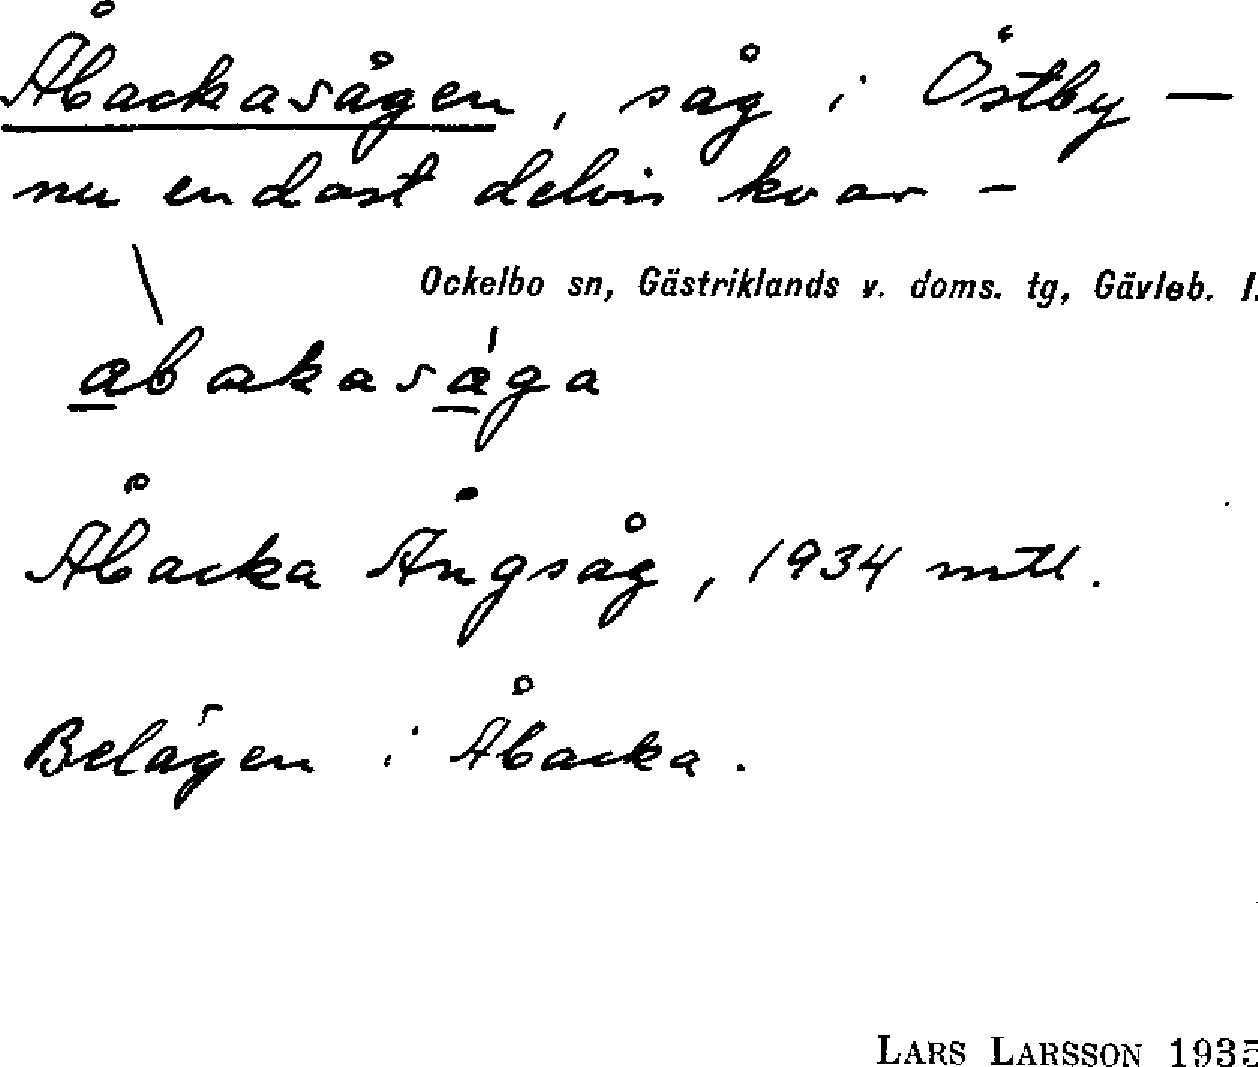 Åbackasågen, såg i Östby —
nu endast delvis kvar –
Ockelbo sn, Gästriklands v. doms. tg, Gävleb. l.
abakasága
Åbacka Ångsåg, 1934 mtl.
Belägen i Åbacka.
LARS LARSSON 1935